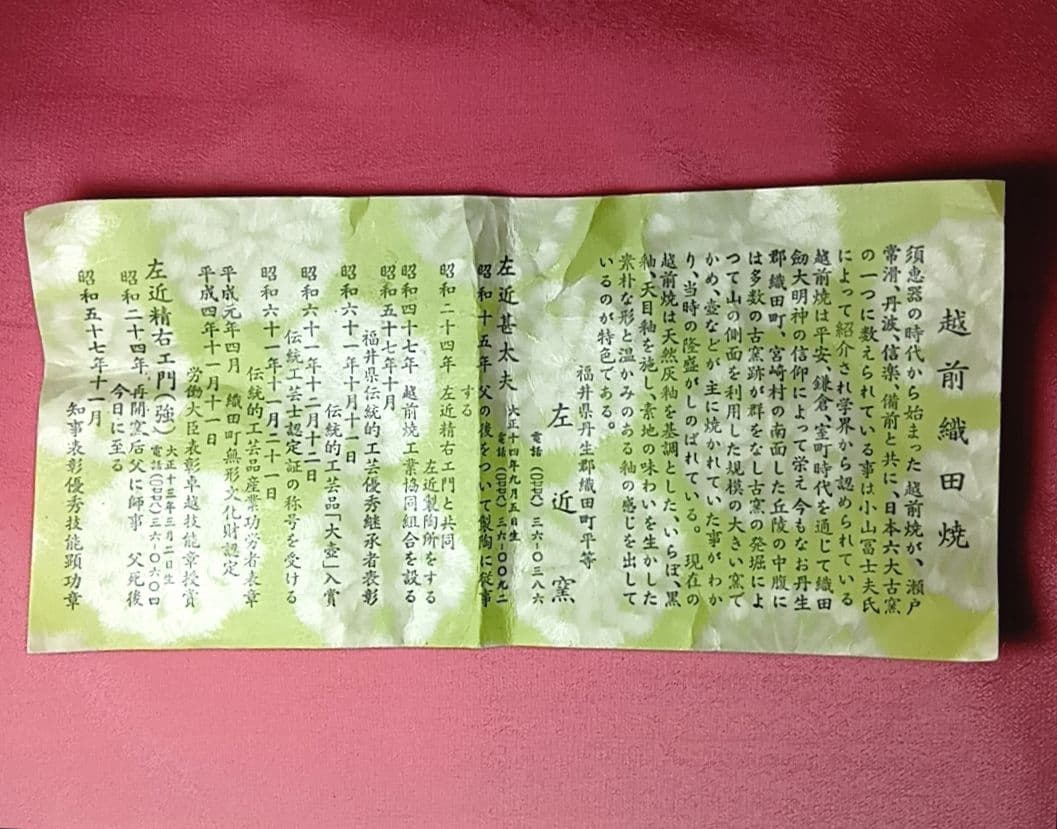 越前織田焼
須恵器の時代から始まった越前焼が、瀬戸
常滑、丹波、信楽、備前と共に、日本六大古窯
の一つに数えられている事は小山冨士夫氏
によって紹介され学界から認められている
越前焼は平安、鎌倉、室町時代を通じて織田
劔大明神の信仰によって栄え、今もなお丹生
郡織田町、宮崎村の南面した丘陵の中腹に
は多数の古窯跡が群をなし古窯の発掘によ
って山の側面を利用した規模の大きい窯で
かめ、壺などが主に焼かれていた事がわか
り、当時の隆盛がしのばれている。 現在の
越前焼は天然灰釉を基調とした、いらぼ、黒
釉、天目釉を施し、素地の味わいを生かした
素朴な形と温かみのある釉の感じを出して
いるのが特色である。
福井県丹生郡織田町平等
左近窯
電話(〇七七八)三六-〇三八六
左近甚太夫 大正十四年九月五日生
電話(〇七七八)三六-〇〇九二
昭和十五年 父の後をついて製陶に従事
する
昭和二十四年 左近精右エ門と共同
左近製陶所をする
昭和四十七年 越前焼工業協同組合を設る
昭和五十七年十月
福井県伝統的工芸優秀継承者表彰
昭和六十一年十月十一日
伝統的工芸品「大壺」入賞
昭和六十一年十二月十二日
伝統工芸士認定証の称号を受ける
昭和六十一年十一月二十一日
伝統的工芸品産業功労者表章
平成元年四月 織田町無形文化財認定
平成四年十一月十一日
労働大臣表彰卓越技能章授賞
左近精右エ門(強) 大正十三年三月二日生
電話(〇七七八)三六-〇六〇四
昭和二十四年、再開窯后父に師事 父死後
今日に至る
昭和五十七年十一月
知事表彰優秀技能顕功章